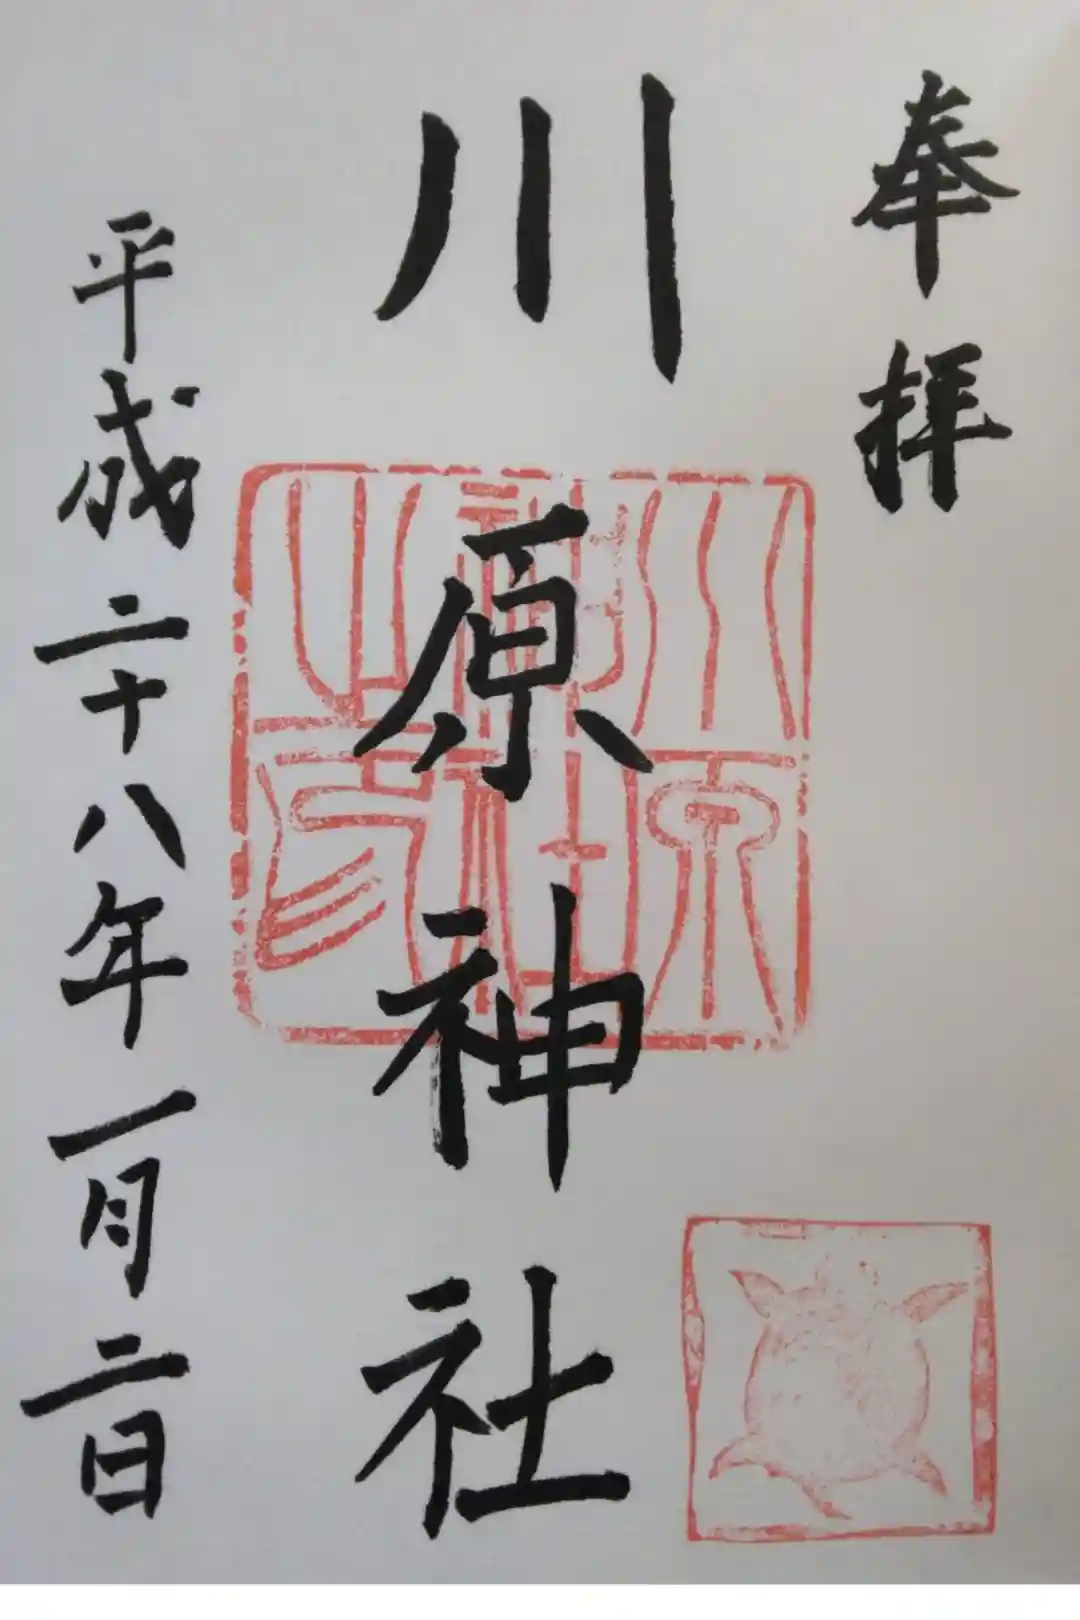 奉拝
川原神社
平成二十八年一月二日
川原
神社
之印